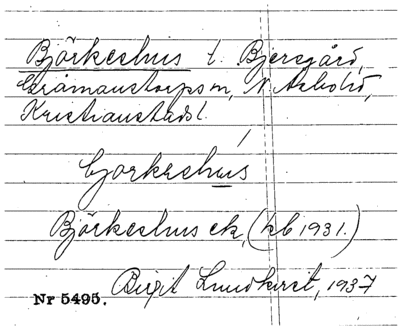 Björkeshus t. Bjersgård,
Gråmanstorps sn, N. Åsbo hd,
Kristianstads l.
bjørkeshús
Björkeshus ek, (kb 1931.)
Birgit Lundkvist, 1937
Nr 5495.